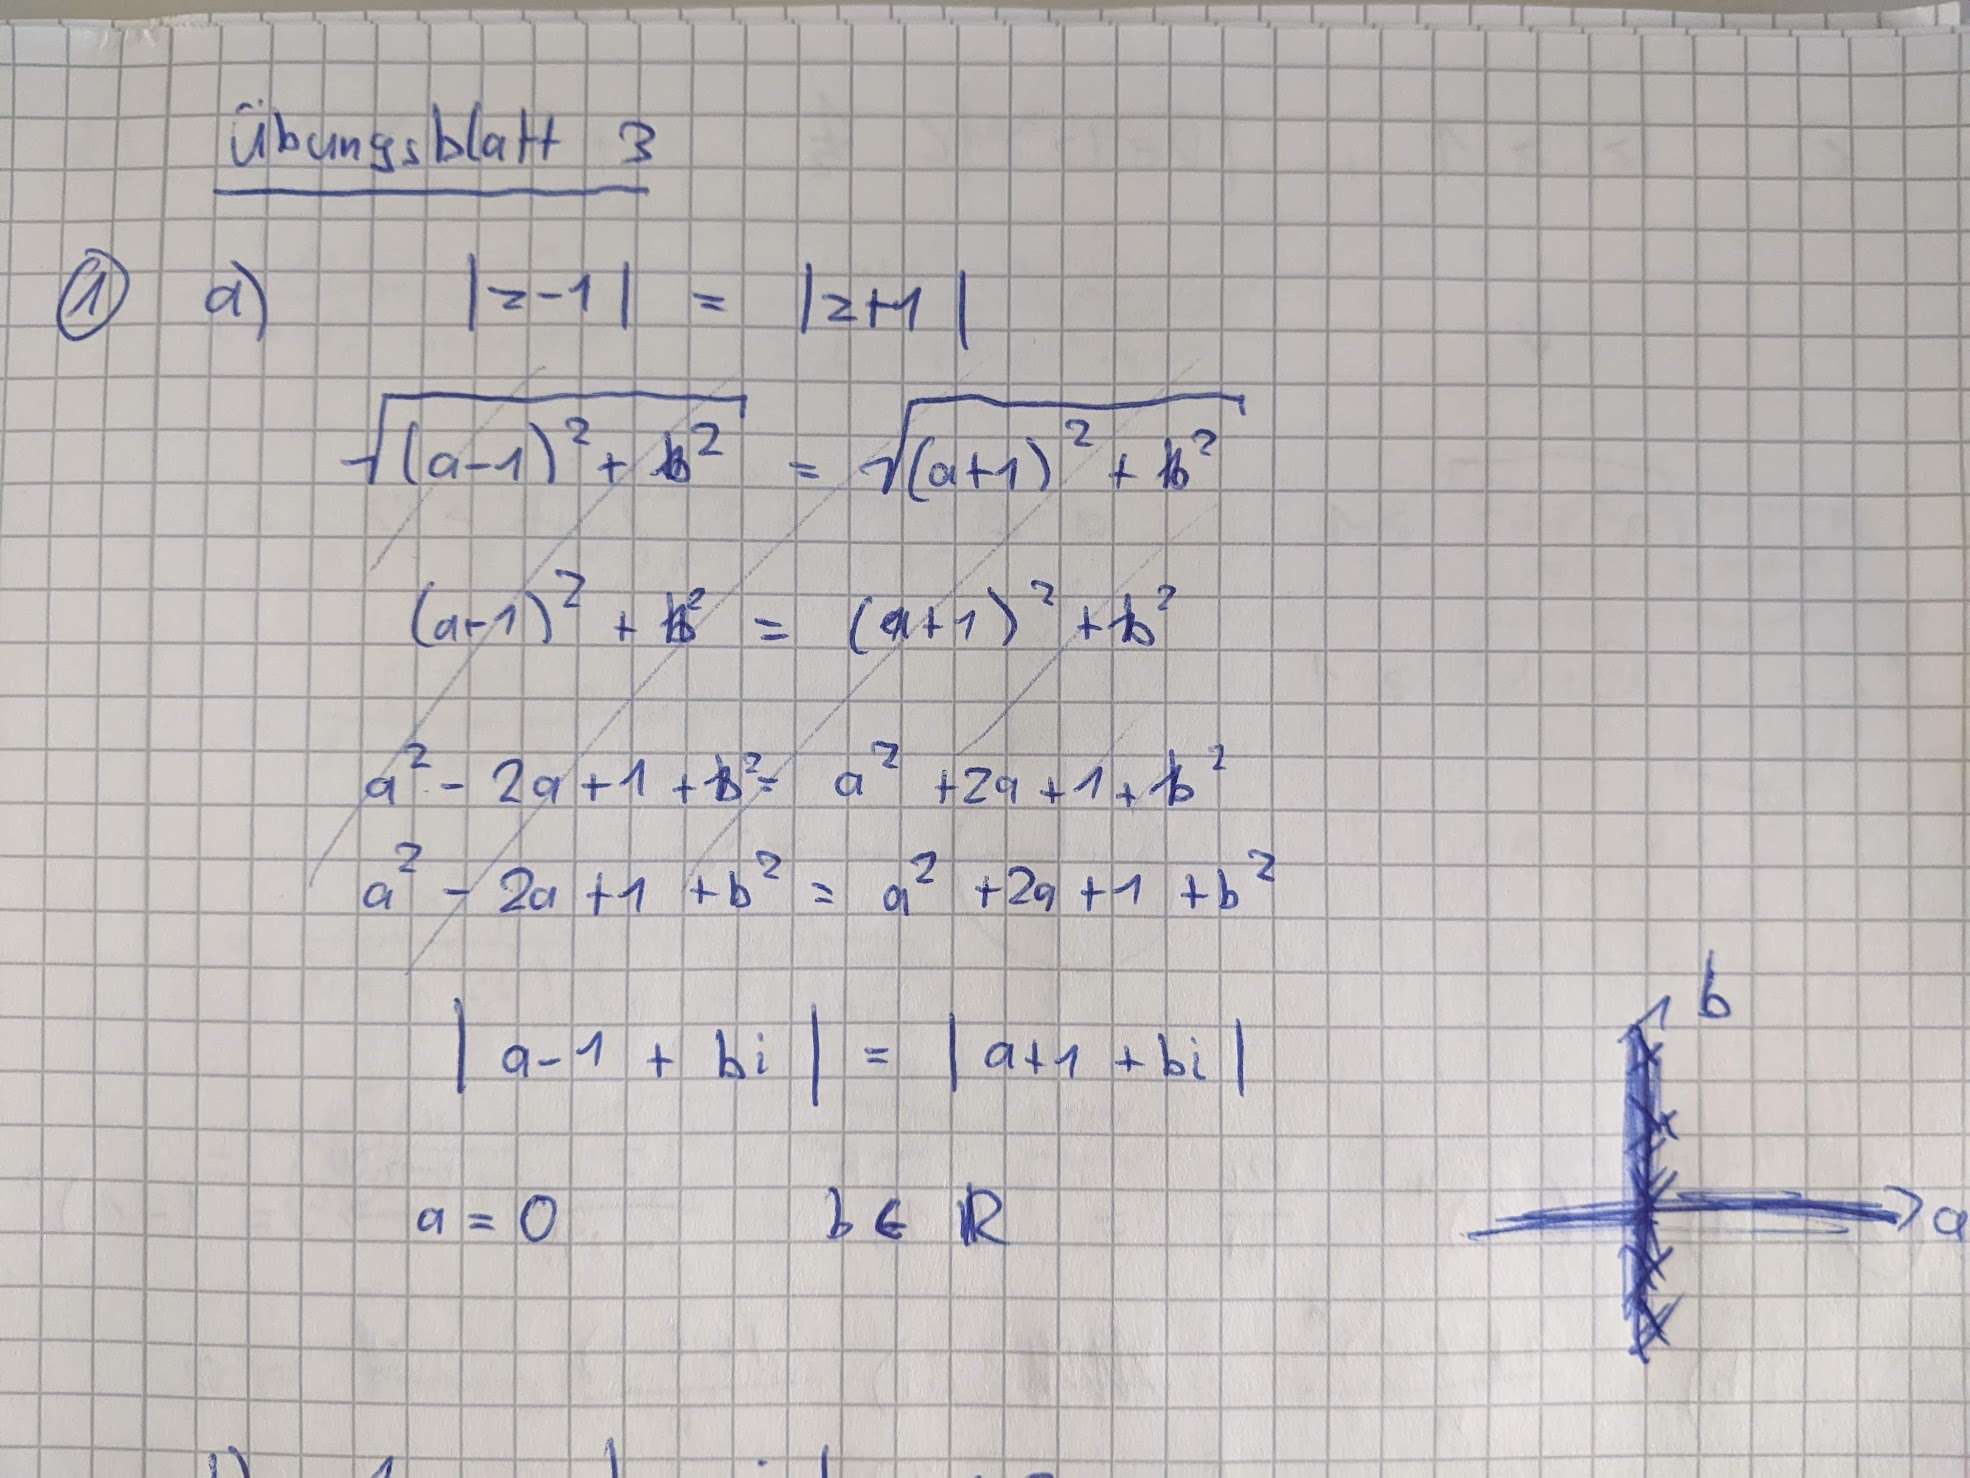 Übungsblatt 3
① a) |z-1| = |z+1|
√((a-1)² + b²) = √((a+1)² + b²)
(a-1)² + b² = (a+1)² + b²
a² - 2a + 1 + b² = a² + 2a + 1 + b²
a² - 2a + 1 + b² = a² + 2a + 1 + b²
b
| a-1 + bi | = | a+1 + bi |
a = 0 b ∈ ℝ
a